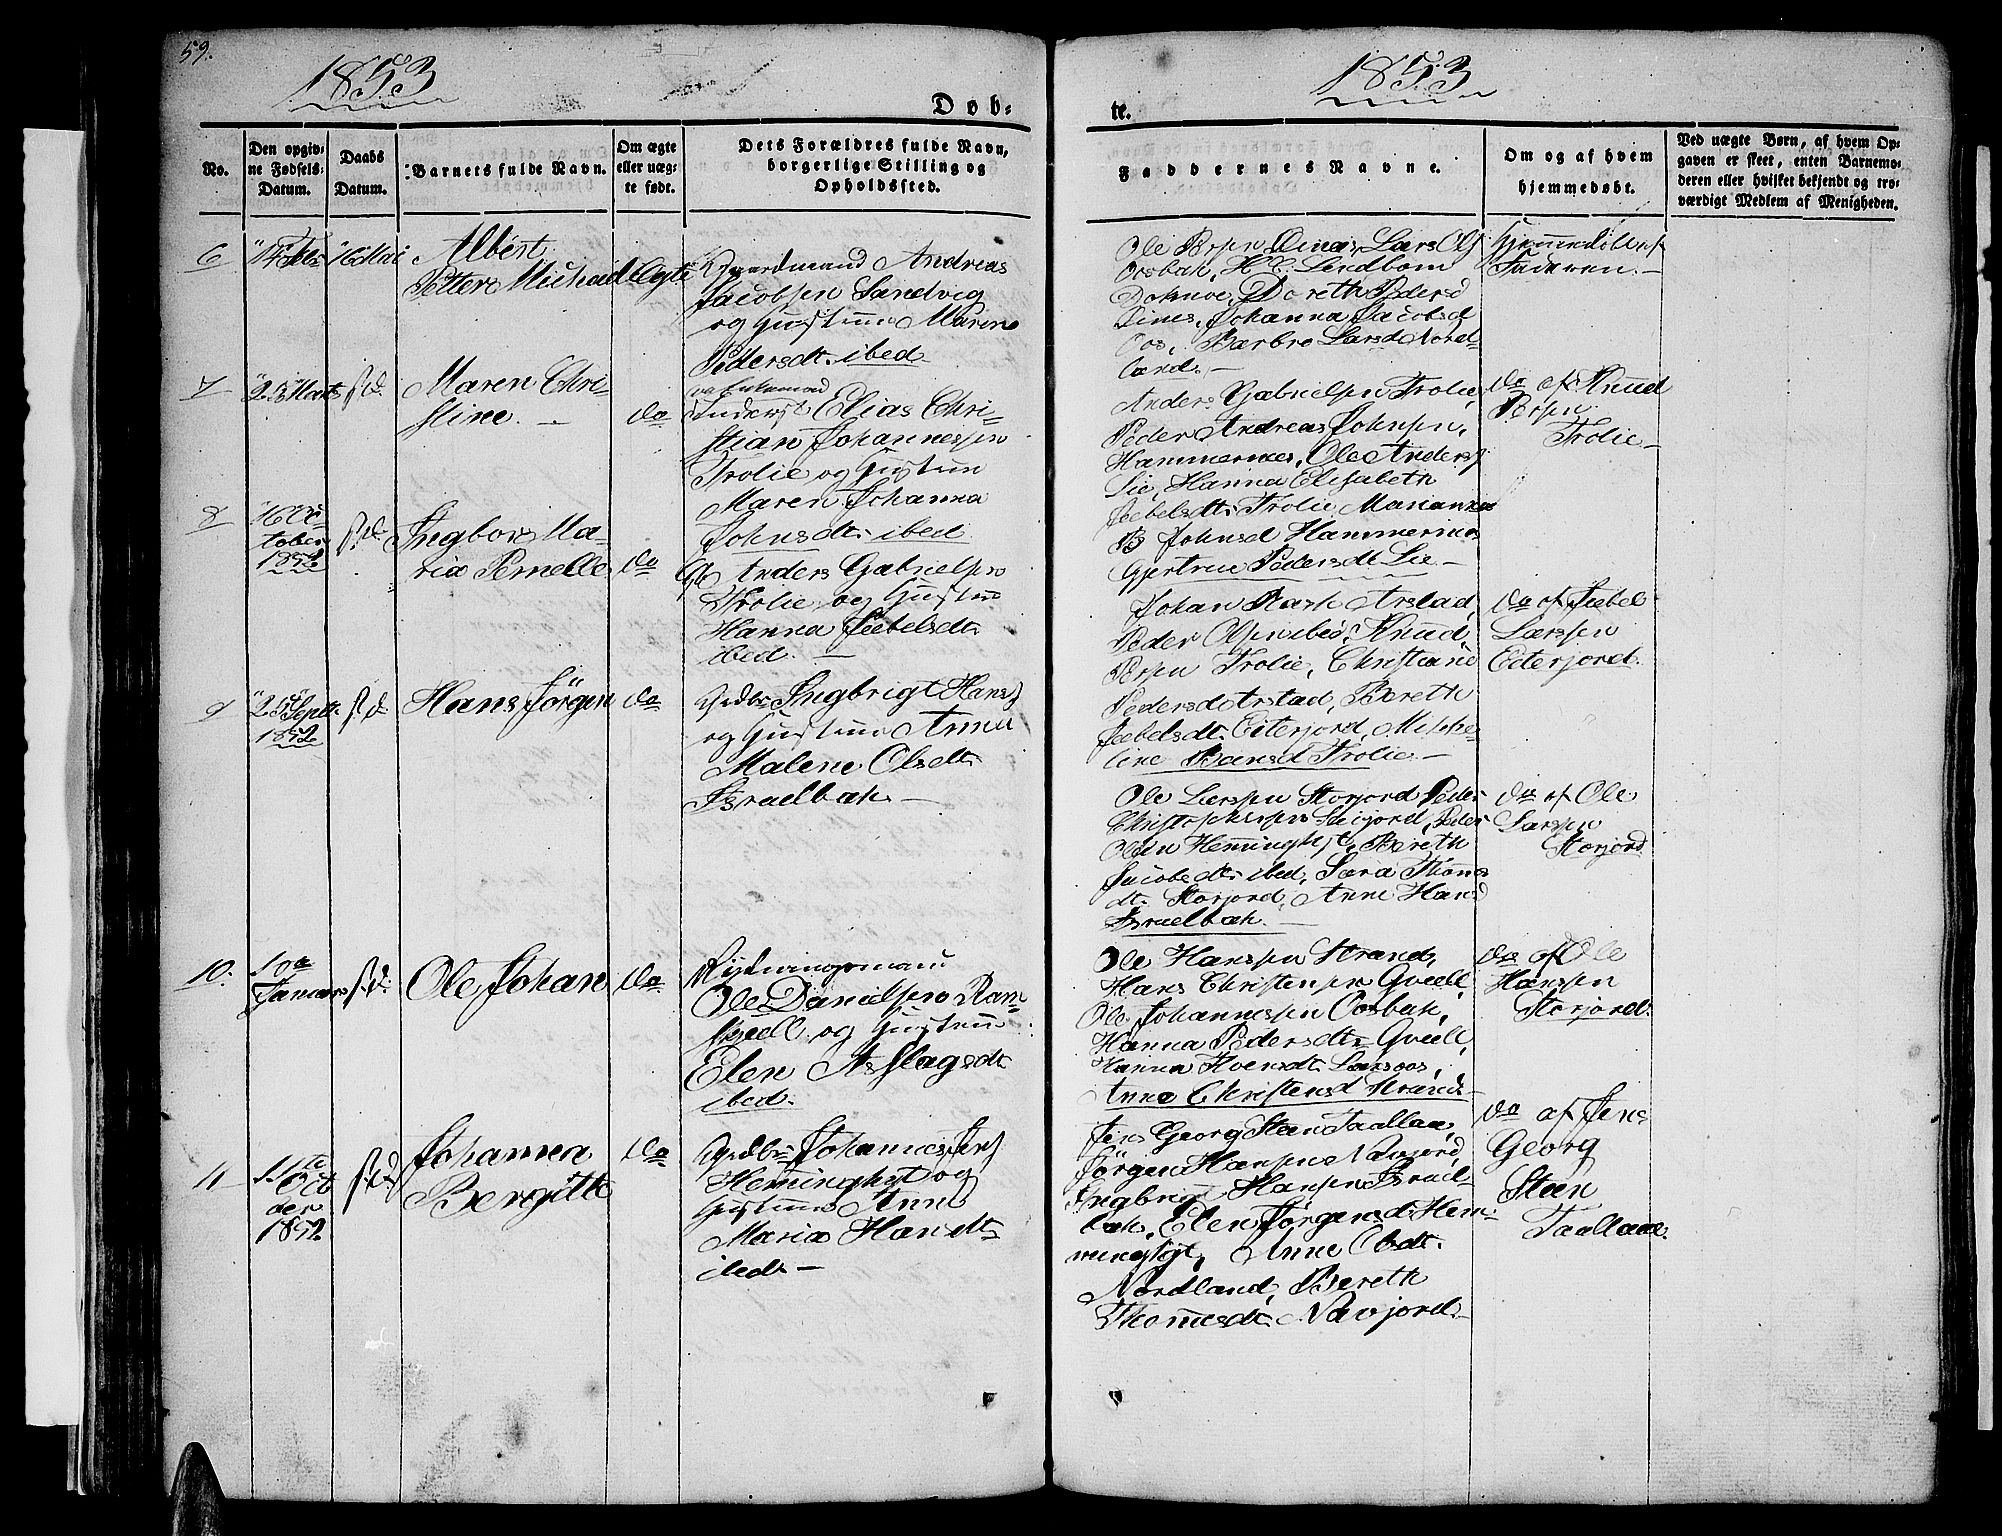 59.
1853
Døb-
No.
Den opgiv-
ne Fødsels-
Datum.
Daabs
Datum.
Barnets fulde Navn.
Om ægte
eller uæg-
te født.
Dets Forældres fulde Navn,
borgerlige Stilling og
Opholdssted.
6
16 Mai
Albert
Petter Michael
Ægte
Andreas
Jacobsen Sandvig
og Hustrue Maren
Pedersdt. ibed
7
25 Marts
s. d.
Maren Chri-
stine.
do
Elias Chri-
stian Johannessen
Trolie og Hustrue
Maren Johanna
Johnsdt. ibed
8
16 Oc-
tober
1852
s. d.
Ingbor Ma-
ria Pernelle
do
Anders Gabrielsen
Trolie og Hustrue
Hanna Seebelsdt.
ibed.
9
25 Septb.
1852
s. d.
Hans Jørgen
do
Ingbrigt Hans
og Hustrue Anna
Malene Olsdt.
Israelbak
10.
10de
Januar
s. d.
Ole Johan
do
Rydningsmand
Ole Danielsen Ram-
skjell og Hustrue
Elen Aslagsdt.
ibed.
11
11te
Octo-
ber
1852
s. d.
Johanna
Bergitte
do
Johannes
Hemminghyt og
Hustrue Anne
Maria Hansdt.
ibed.
1853
te.
Faddernes Navne.
Om og af hvem
hjemmedøbt.
Ved uægte Børn, af hvem Op-
gaven er skeet, enten Barnemo-
deren eller hvilket bekjendt og tro-
værdigt Medlem af Menigheden.
Ole Lars Ols
Oosbak, H. C. Lindbom
Doreth Peders
Johanna Jacobsd
Oos, Barbro Larsd Nord-
land.
Hjemmedøbt af
Faderen.
Anders Gabrielsen Trolie,
Peder Andreas Johnsen,
Hammernes, Ole Anders
Lie, Hanna Elisabeth
Seebelsdt. Trolie, Marianna
B Johnsd Hammernes
Gjertrue Pedersdt Lie
do af Knud
Persen
Trolie
Johan Rask Arstad,
Peder Olsen ibed, Knud
Persen Trolie, Christiane
Pedersd Arstad, Bereth
Seebelsdt. Eiterjord, Mikke-
line Trolie.
do af Seebel
Larssen
Eiterjord.
Ole Larssen Storjord, Peder
Christophersen Peder
Olsen Hemminghyt, Bereth
Jacobsdt. ibed, Sara Thoms
dt. Storjord, Anne Hans
Israelbak.
do af Ole
Larssen
Storjord
Ole Hanssen Strand,
Hans Christensen Qvell,
Ole Johannessen Oosbak,
Hanna Pedersdt. Qvell,
Hanna Larsoos,
Anne Christensd Strand
do af Ole
Hanssen
Storjord.
Jens Georg Steen Taallaa,
Jørgen Hansen Navjord,
Ingbrigt Hansen Israel-
bak, Elen Jørgensd Hem-
minghyt, Anne Olsdt.
Nordland, Bereth
Thomesdt. Navjord.
do af Jens
Georg
Steen
Taallaae.